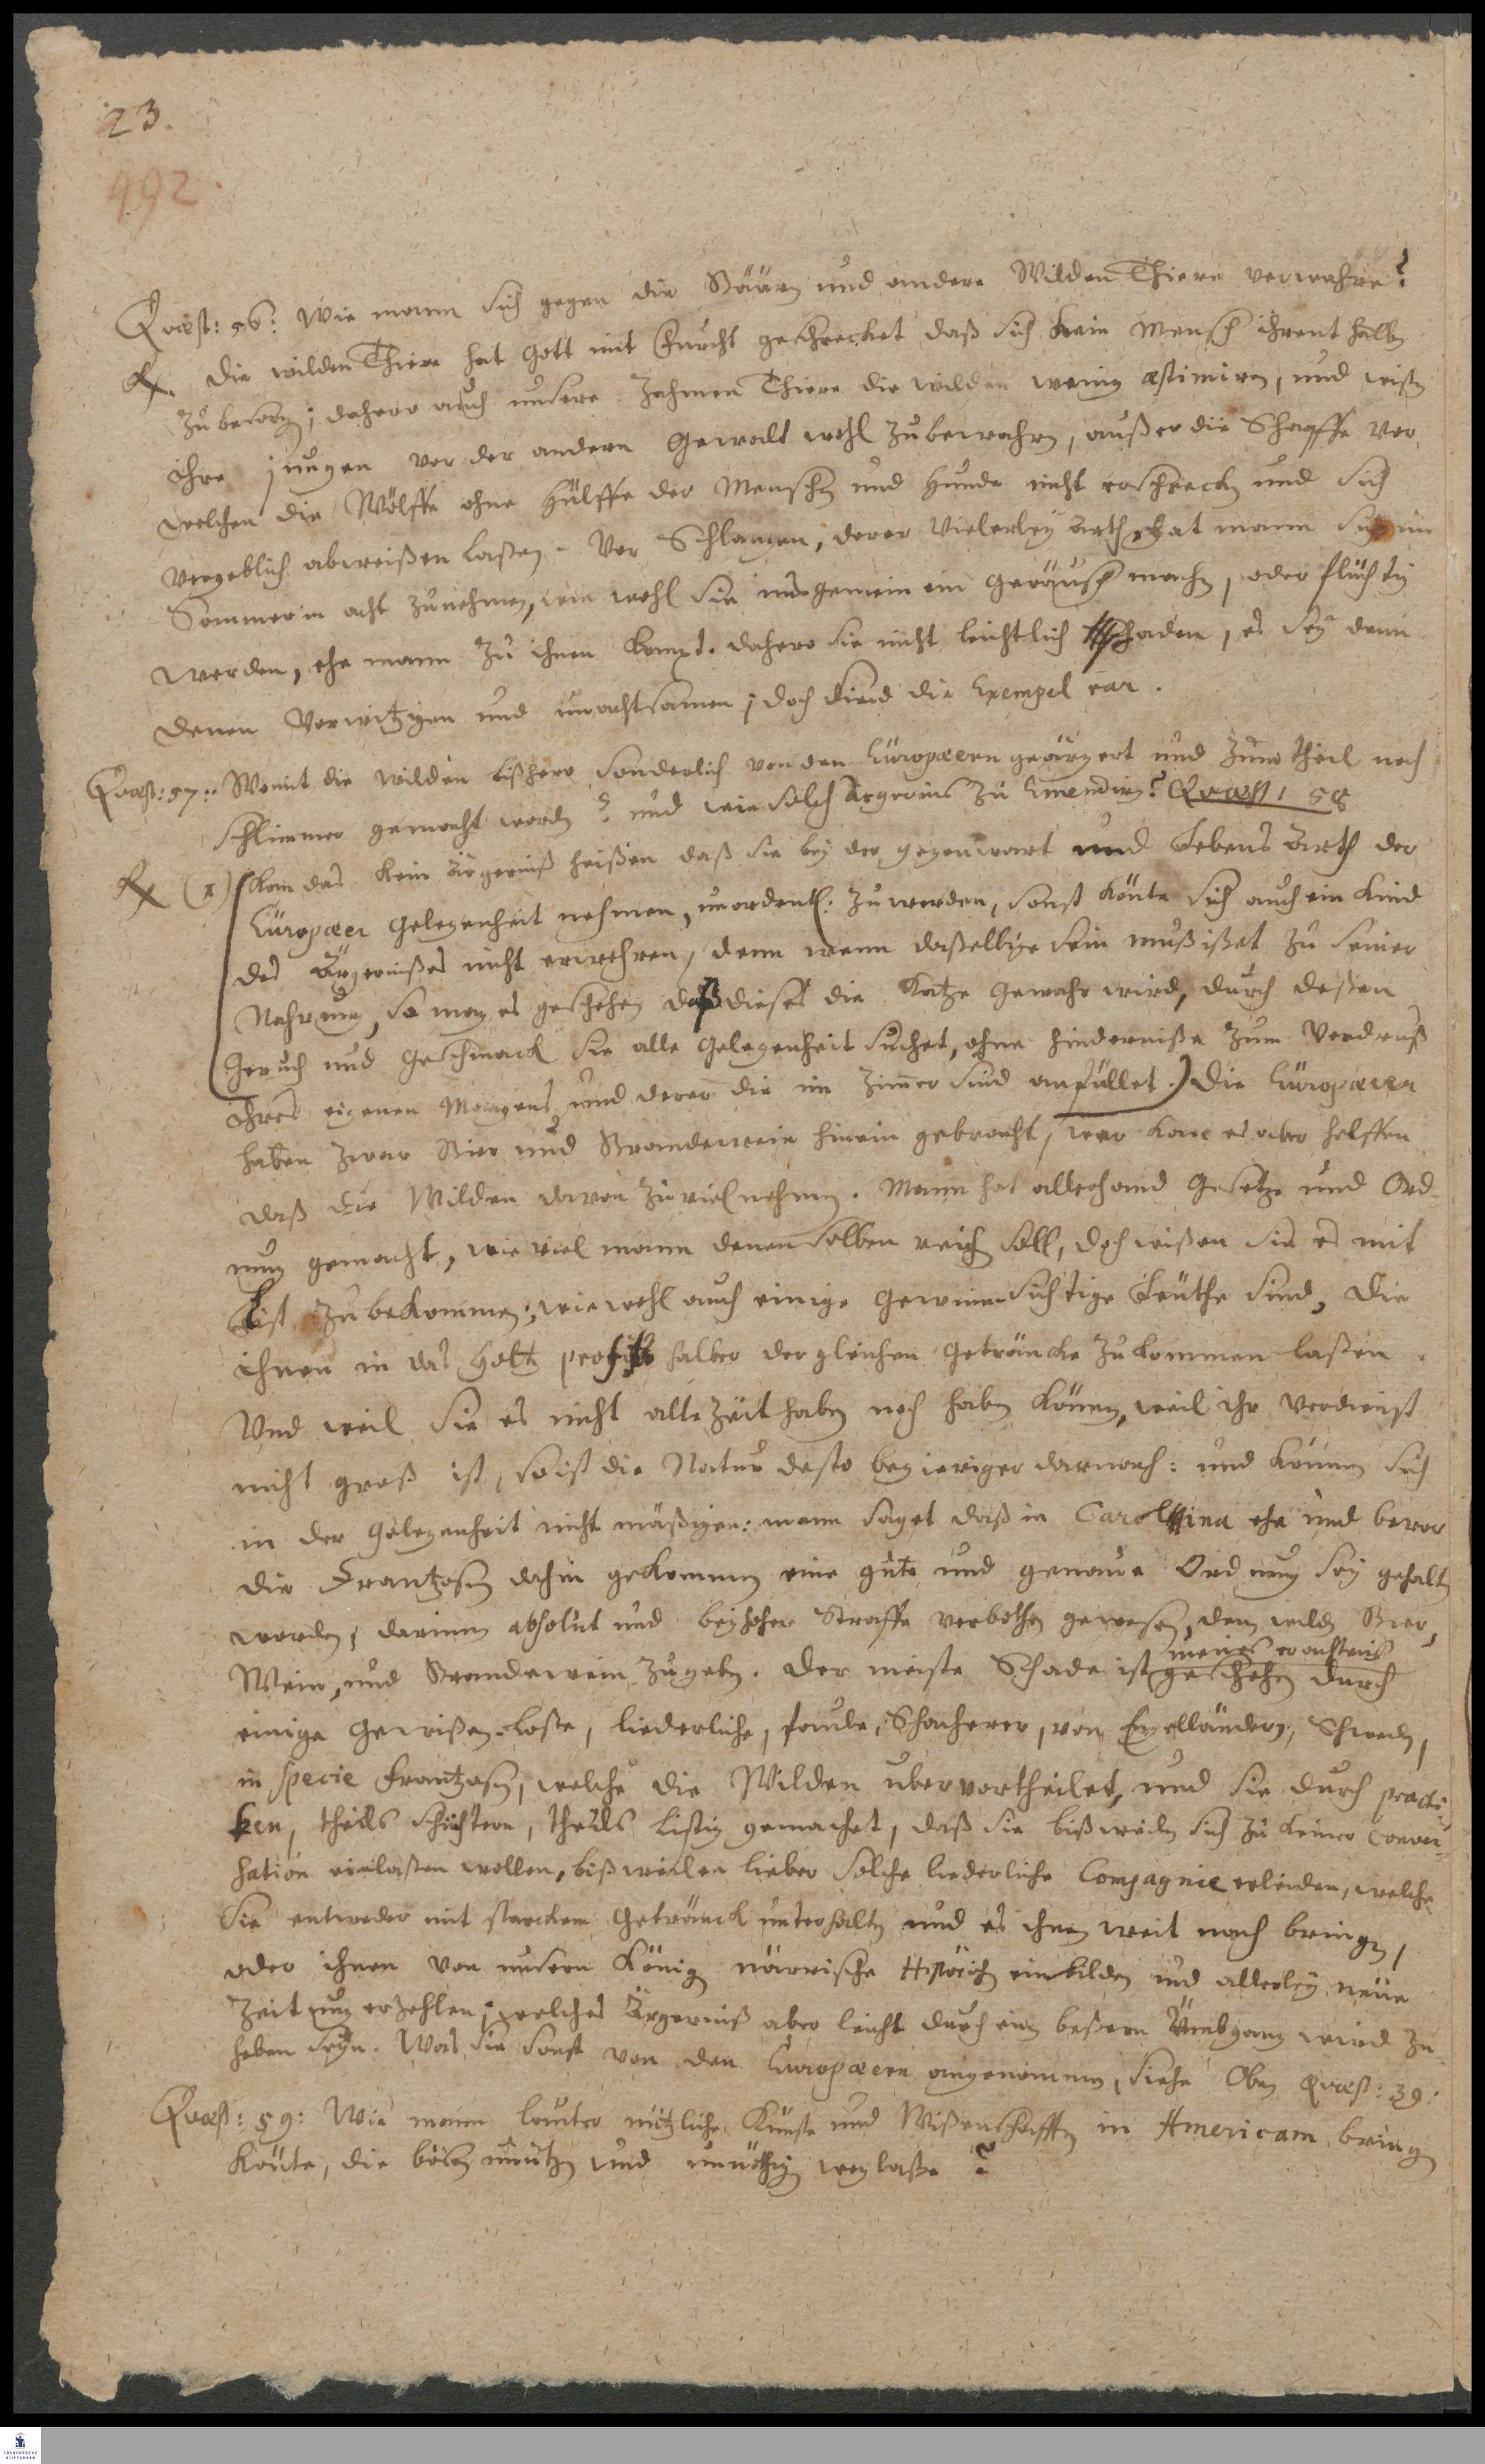 23.
492.
Quæst: 56: Wie mann sich gegen die Bären und andere Wilden Thiere verwahre?
Rx. Die wilden Thiere hat Gott mit Furcht geschrecket daß sich kein Mensch ihrent halben
zu besorgen; dahero auch unsere Zahmen Thiere die wilden wenig æstimiren, und wißen
ihre jungen vor der andern Gewalt wohl zubewahren, außer die Schaaffe vor
welchen die Wölffe ohne Hülffe der Menschen und Hunde nicht erschrecken und sich
vergeblich abweißen laßen. Vor Schlangen, derer Vielerley Arth, hat mann sich im
Sommer in acht zunehmen, wie wohl sie ins gemein ein Geräusch machen, oder flüchtig
werden, ehe mann zu ihnen kompt. Dahero sie nicht leichtlich schaden, es sey denn
denen Vorwitzigen und unachtsamen; doch sind die Exempel rar.
Quæst: 57: Womit die wilden bißhero sonderlich von den Europæern geärgert und zum theil noch
schlimmer gemacht worden? und wie solch Ärgernis zu Emendiren? Quæst: 58
Rx (1) Kan das kein Ärgerniß heißen daß sie bey der gegenwart und Lebens Arth der
Europæer Gelegenheit nehmen, unordentl: zu werden, sonst könte sich auch ein Kind
des Ärgernißes nicht erwehren, denn wenn daßelbige sein muß ißet zu seiner
Nahrung, so mag es geschehen daß dieses die Katze gewahr wird, durch deßen
Geruch und Geschmack sie alle Gelegenheit suchet, ohne hinderniße zum Verdruß
ihres eigenen Magens und derer die im Zimer sind anfüllet.) Die Europæern
haben zwar Bier und Brandewein hinein gebracht, wer kan es aber helffen
daß die Wilden davon zu viel nehmen. Mann hat allerhand Gesetze und Ord-
nung gemacht, wie viel mann denenselben reichen soll, doch wißen sie es mit
List zu bekommen; wiewohl auch einige Gewinnsichtige Leuthe sind, Die
ihnen in das Holtz profits halber dergleichen Geträncke zukommen laßen.
Und weil sie es nicht alle Zeit haben noch haben können, weil ihr Verdienst
nicht groß ist, so ist die Natur desto begieriger darnach: und können sich
in der Gelegenheit nicht mäßigen: mann saget daß in Carolina ehe und bevor
die Frantzosen dahin gekommen eine gute und genaue Ordnung sey gehalten
worden, darinnen absolut und bey hoher Straffe verbothen gewesen, den wilden Bier,
Wein, und Brandewein zu geben. Der meiste Schade ist meines erachtens geschehen durch
einige Gewißen-lose, liederliche, faule, Schacherer, von Engelländern, Schweden,
in specie Frantzosen, welche die Wilden ubervortheilet, und sie durch practi-
ken, theils schichtern, theils listig gemachet, daß sie bißweilen sich zu keiner conver-
sation einlaßen wollen, bißweilen lieber solche liederliche Compagnie erleiden, welche
sie entweder mit starckem Getränck unterhalten und es ihnen weit nach bringen,
oder ihnen von unsern König närrische Historien einbilden und allerley neue
Zeitung erzehlen; welches Ärgerniß aber leicht durch ein beßern Umbgang wird zu-
heben seyn. Was sie sonst von den Europæern angenommen, siehe Oben Quæst: 39:
Quæst: 59: Wie mann lauter nützliche Künste und Wißenschafften in Americam bringen
könte, die bösen unnützen und unnöthigen weglaße?
FRANCKESCHE
STIFTUNGEN